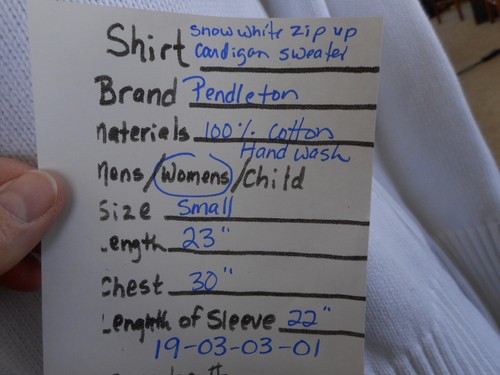 snow white zip up
Shirt cardigan sweater
Brand Pendleton
Materials 100% cotton
Hand wash
Mens/Womens/Child
Size Small
Length 23"
Chest 30"
Length of Sleeve 22"
19-03-03-01